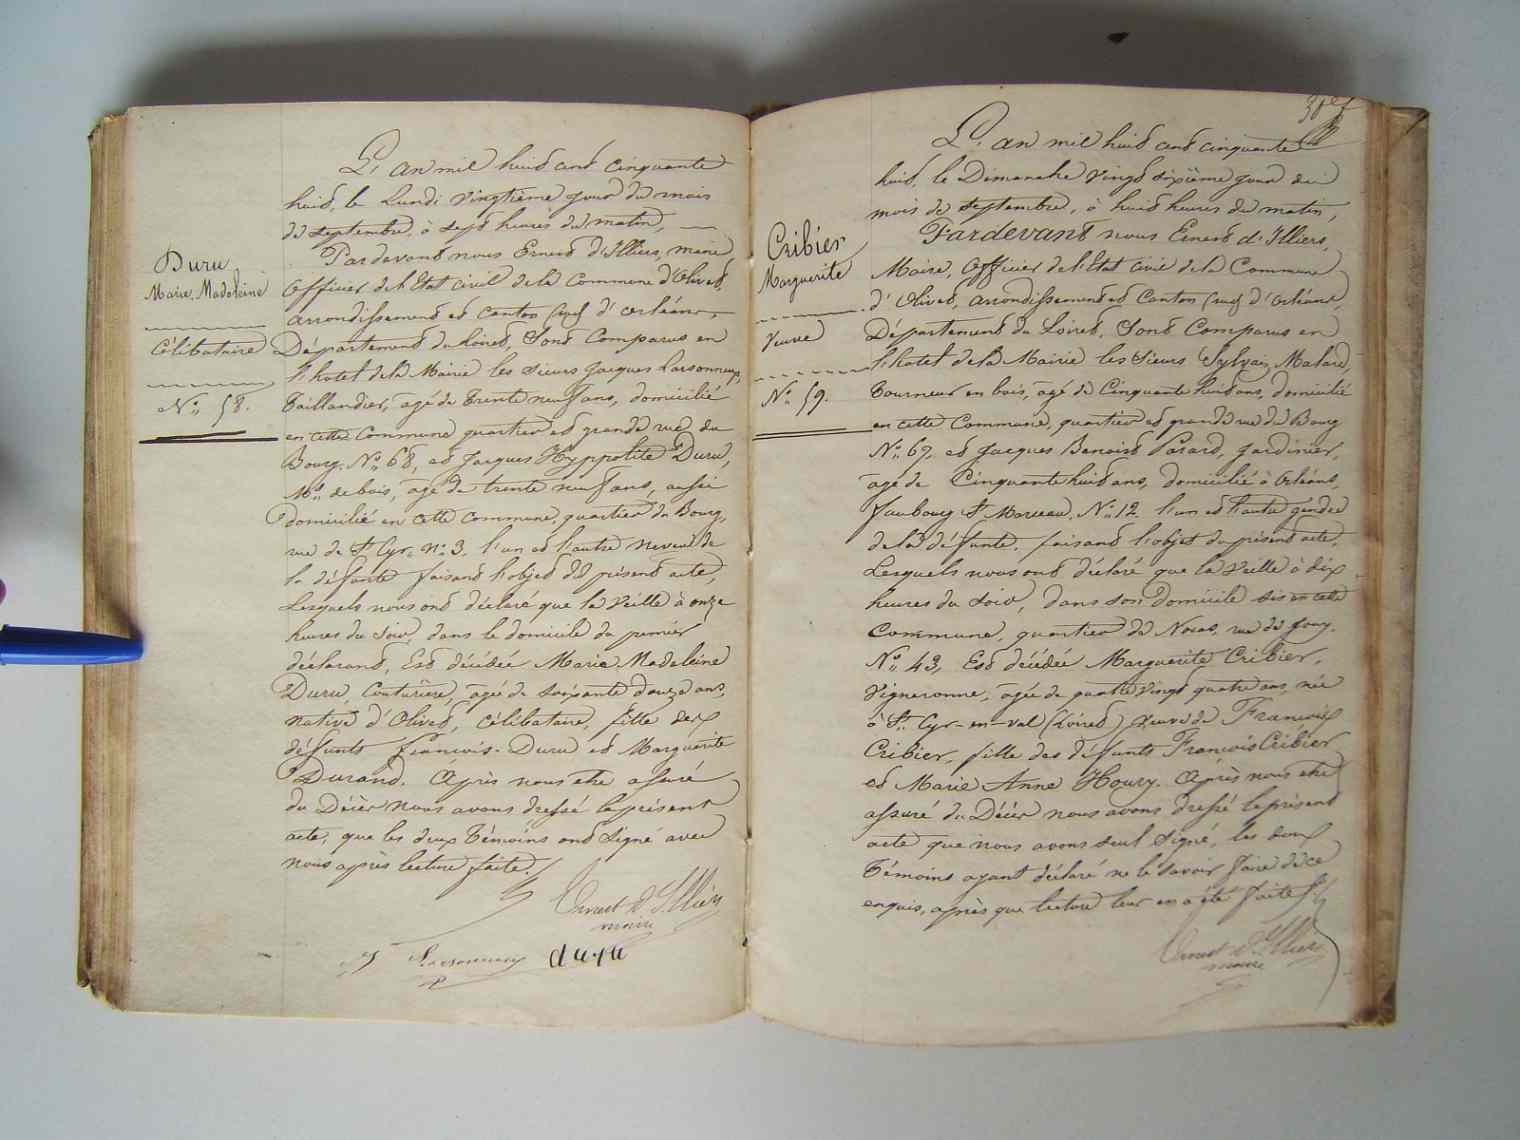 Duru
Marie Madeleine
Célibataire
N° 58.
L'an mil huit cent cinquante
huit, le Lundi vingtième jour du mois
de septembre, à sept heures du matin,
Pardevant nous Ernest d'Illiers, maire
officier de l'Etat civil de la Commune d'Olivet,
arrondissement et canton Sud d'orléans,
Département du Loiret, Sont Comparus en
l'hotel de la Mairie les Sieurs Jacques Larsonneur,
Taillandier, agé de trente neuf ans, domicilié
en cette Commune quartier et grande rue du
Bourg, N° 68, et Jacques Hyppolite Duru,
Md. de bois, agé de trente neuf ans, aussi
domicilié en cette commune, quartier du Bourg,
rue de St Cyr, n° 3. l'un et l'autre neveux de
la défunte faisant l'objet du présent acte,
Lesquels nous ont déclaré que la veille à onze
heures du soir, dans le domicile du premier
déclarant, Est décédée Marie Madeleine
Duru, Couturière, agée de soixante douze ans,
native d'Olivet, célibataire, fille des
défunts françois Duru et Marguerite
Durand. Après nous etre assuré
du Décès nous avons dressé le présent
acte, que les deux témoins ont signé avec
nous après lecture faite.
Ernest d'Illiers
maire
Larsonneur duru
Cribier
Marguerite
Veuve
N° 59.
L'an mil huit cent cinquante
huit, le Dimanche vingt sixième jour du
mois de septembre, à huit heures du matin,
Pardevant nous Ernest d'Illiers,
Maire, officier de l'Etat civil de la Commune
d'Olivet, arrondissement et Canton Sud d'Orléans,
Département du Loiret, Sont Comparus en
l'hotel de la Mairie les Sieurs Sylvain Malard,
tourneur en bois, agé de Cinquante huit ans, domicilié
en cette Commune, quartier et grande rue du Bourg
N° 67, et Jacques Benoist Parard, jardinier,
agé de Cinquante huit ans, domicilié à Orléans,
faubourg St Marceau, N° 12. l'un et l'autre gendre
de la défunte, faisant l'objet du présent acte,
Lesquels nous ont déclaré que la veille à dix
heures du soir, dans son domicile sis en cette
Commune, quartier de Noras, rue de Jouy,
N° 43, Est décédée Marguerite Cribier,
vigneronne, agée de quatre vingt quatre ans, née
à St Cyr-en-val (Loiret) veuve de François
Cribier, fille des défunts François Cribier
et Marie Anne Houry. Après nous etre
assuré du Décès nous avons dressé le présent
acte que nous avons seul signé, les deux
témoins ayant déclaré ne le savoir faire de ce
enquis, après que lecture leur en a été faite
Ernest d'Illiers
maire